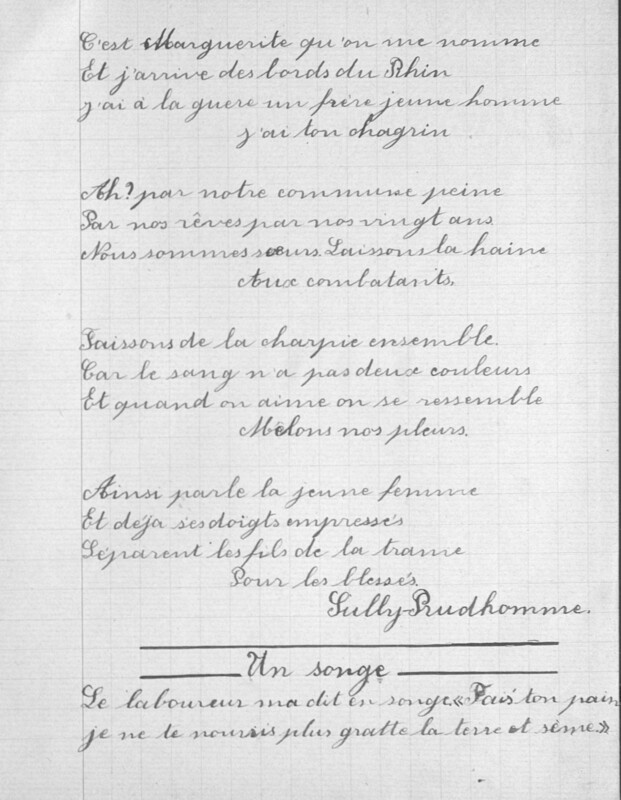 C'est Marguerite qu'on me nomme
Et j'arrive des bords du Rhin
J'ai à la guere un frère jeune homme
J'ai ton chagrin
Ah? par notre commune peine
Par nos rêves par nos vingt ans
Nous sommes sœurs. Laissons la haine
Aux combatants.
Faissons de la charpie ensemble.
Car le sang n'a pas deux couleurs
Et quand on aime on se ressemble
Mêlons nos pleurs.
Ainsi parle la jeune femme
Et déja ses doigts empressés
Séparent les fils de la trame
Pour les blessés.
Sully-Prudhomme.
Un songe
Le laboureur ma dit en songe. «Fais ton pain
je ne te nourris plus gratte la terre et sème.»